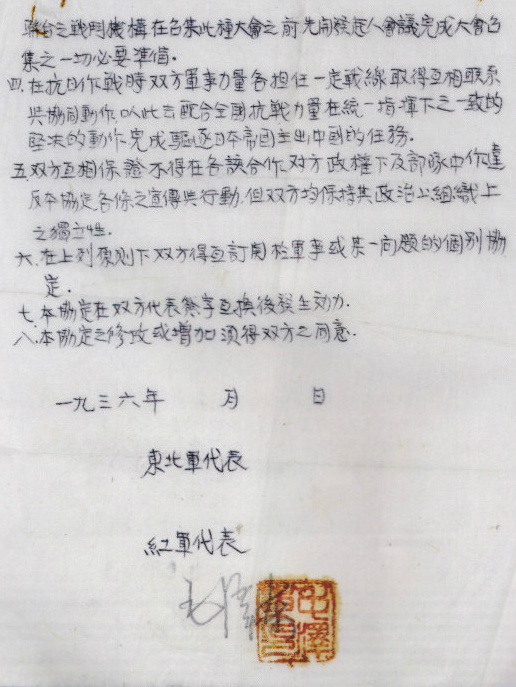 聯合之戰鬥機構在召集此種大會之前先開發起人會議完成大會召
集之一切必要準備.
四.在抗日作戰時双方軍事力量各担任一定戰線取得互相联系
與協同動作以此去配合全國抗戰力量在統一指揮下之一致的
堅决的動作完成驅逐日本帝國主出中國的任務.
五.双方互相保證不得在各該合作对方政權下及部隊中作違
反本協定各條之宣傳與行動.但双方均保持其政治上組織上
之獨立性.
六.在上列原則下双方得互訂関於軍事或某一问題的個別協
定.
七.本協定在双方代表簽字互换後發生効力.
八.本協定之修改或增加須得双方之同意.
一九三六年 月 日
東北軍代表
紅軍代表
毛澤東